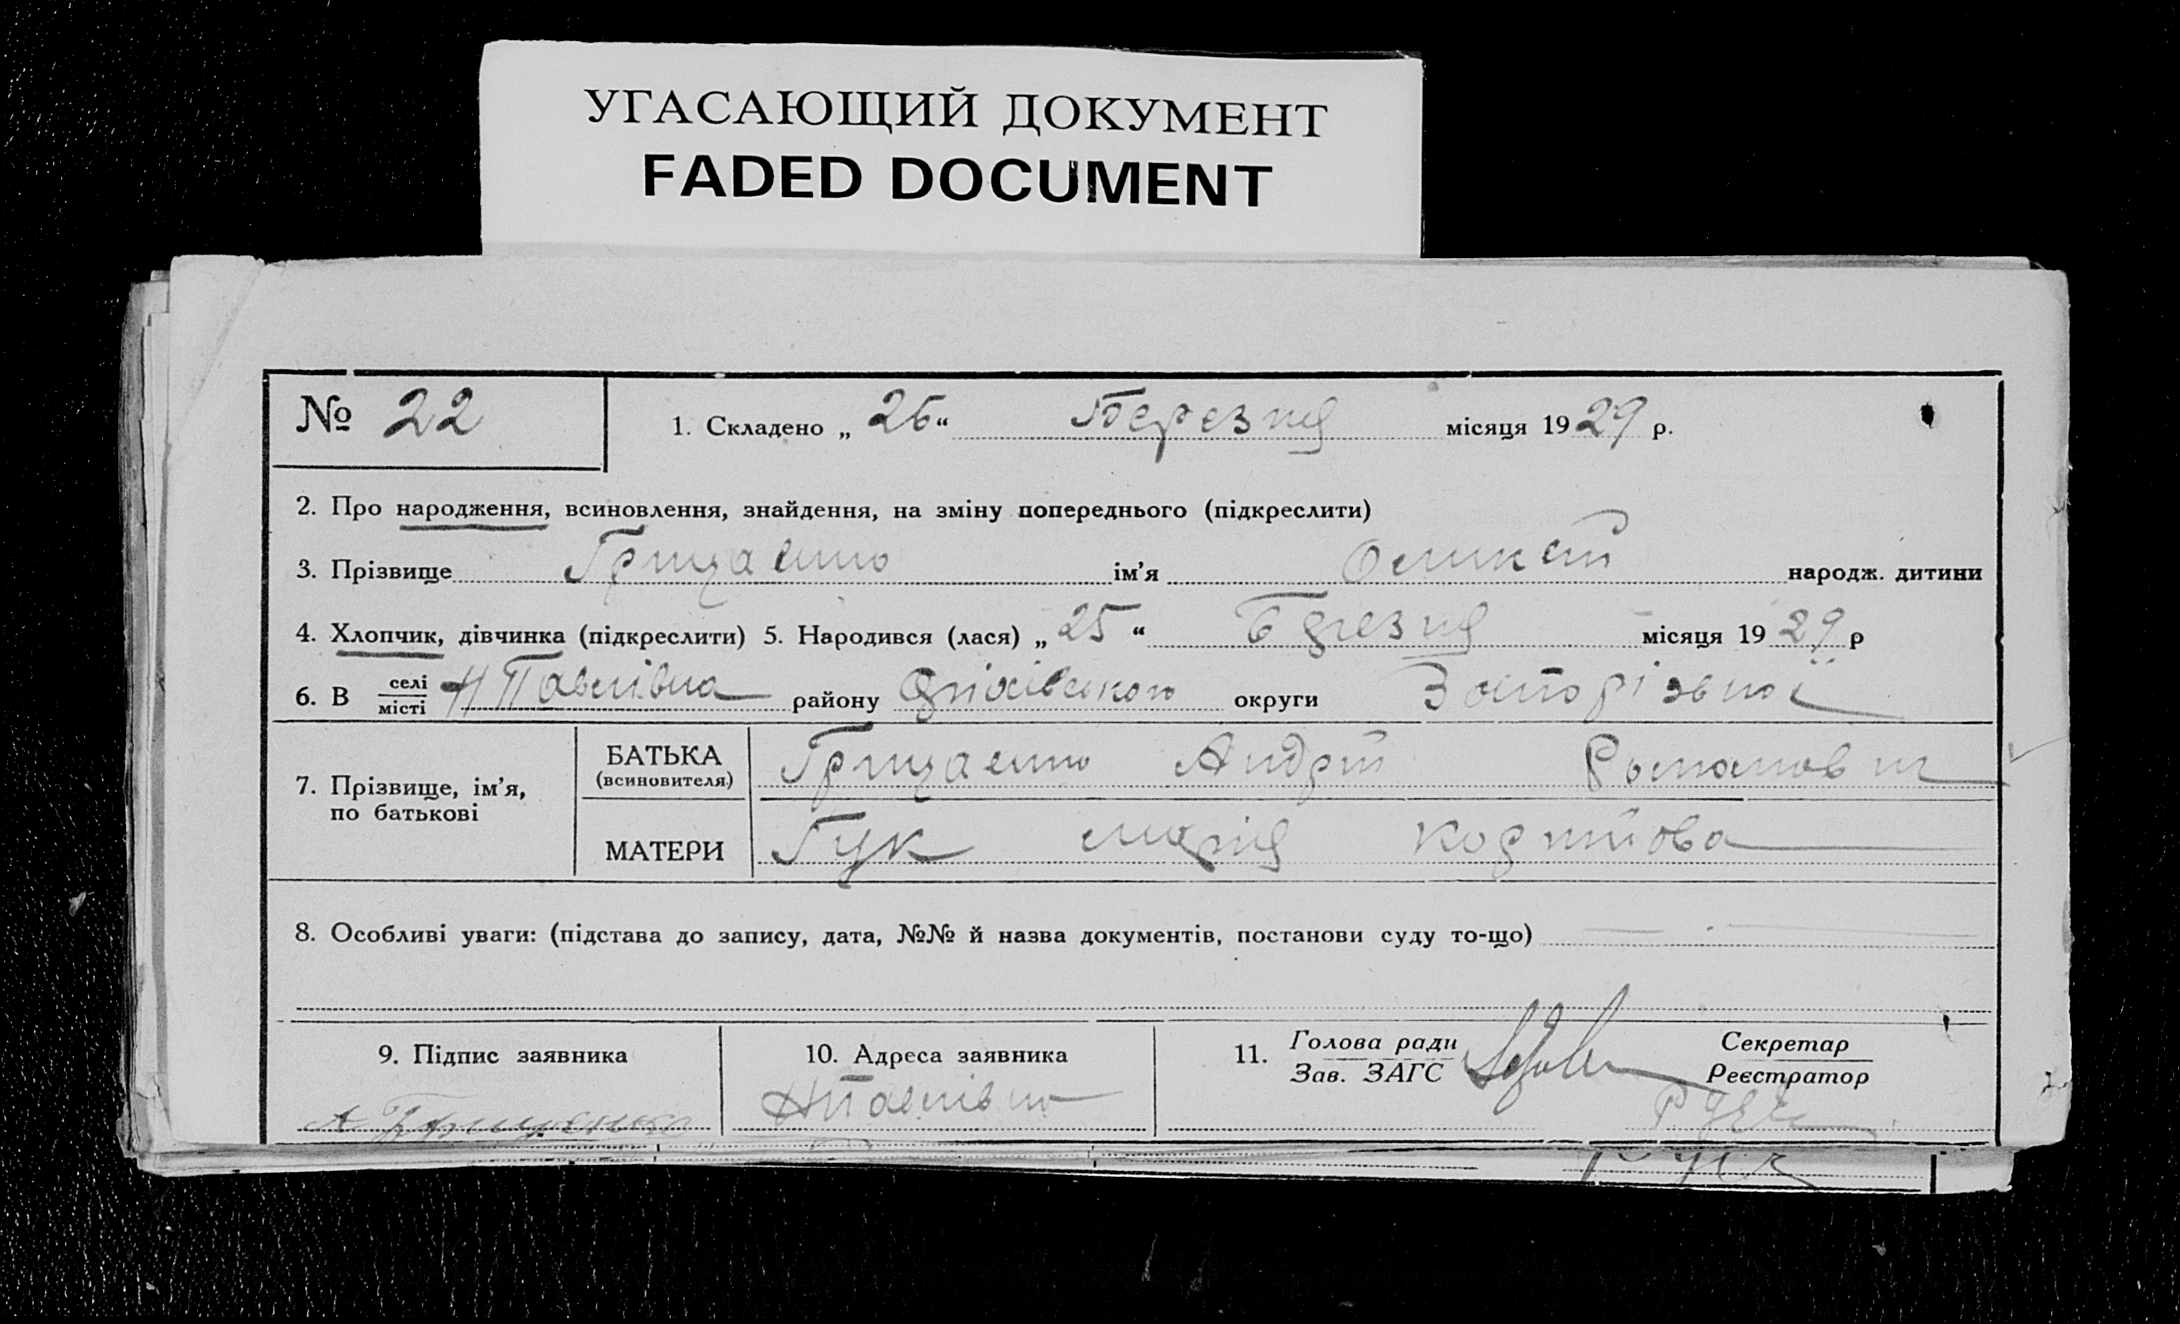 УГАСАЮЩИЙ ДОКУМЕНТ
FADED DOCUMENT
№ 22
1. Складено „ 26 “ Березня місяця 1929 р.
2. Про народження, всиновлення, знайдення, на зміну попереднього (підкреслити)
3. Прізвище Грицаенко ім’я народж. дитини
4. Хлопчик, дівчинка (підкреслити) 5. Народився (лася) „ 25 “ Березня місяця 1929 р
6. В селі Н Павлівка району округи Запорізької
місті
7. Прізвище, ім’я, по батькові
БАТЬКА Грицаенко Андрій Романович
(всиновителя)
МАТЕРИ Гук Марія
8. Особливі уваги: (підстава до запису, дата, №№ й назва документів, постанови суду то-що)
9. Підпис заявника
10. Адреса заявника
11. Голова ради
Зав. ЗАГС
Секретар
Реєстратор
А Грицаенко
Н Павлівка